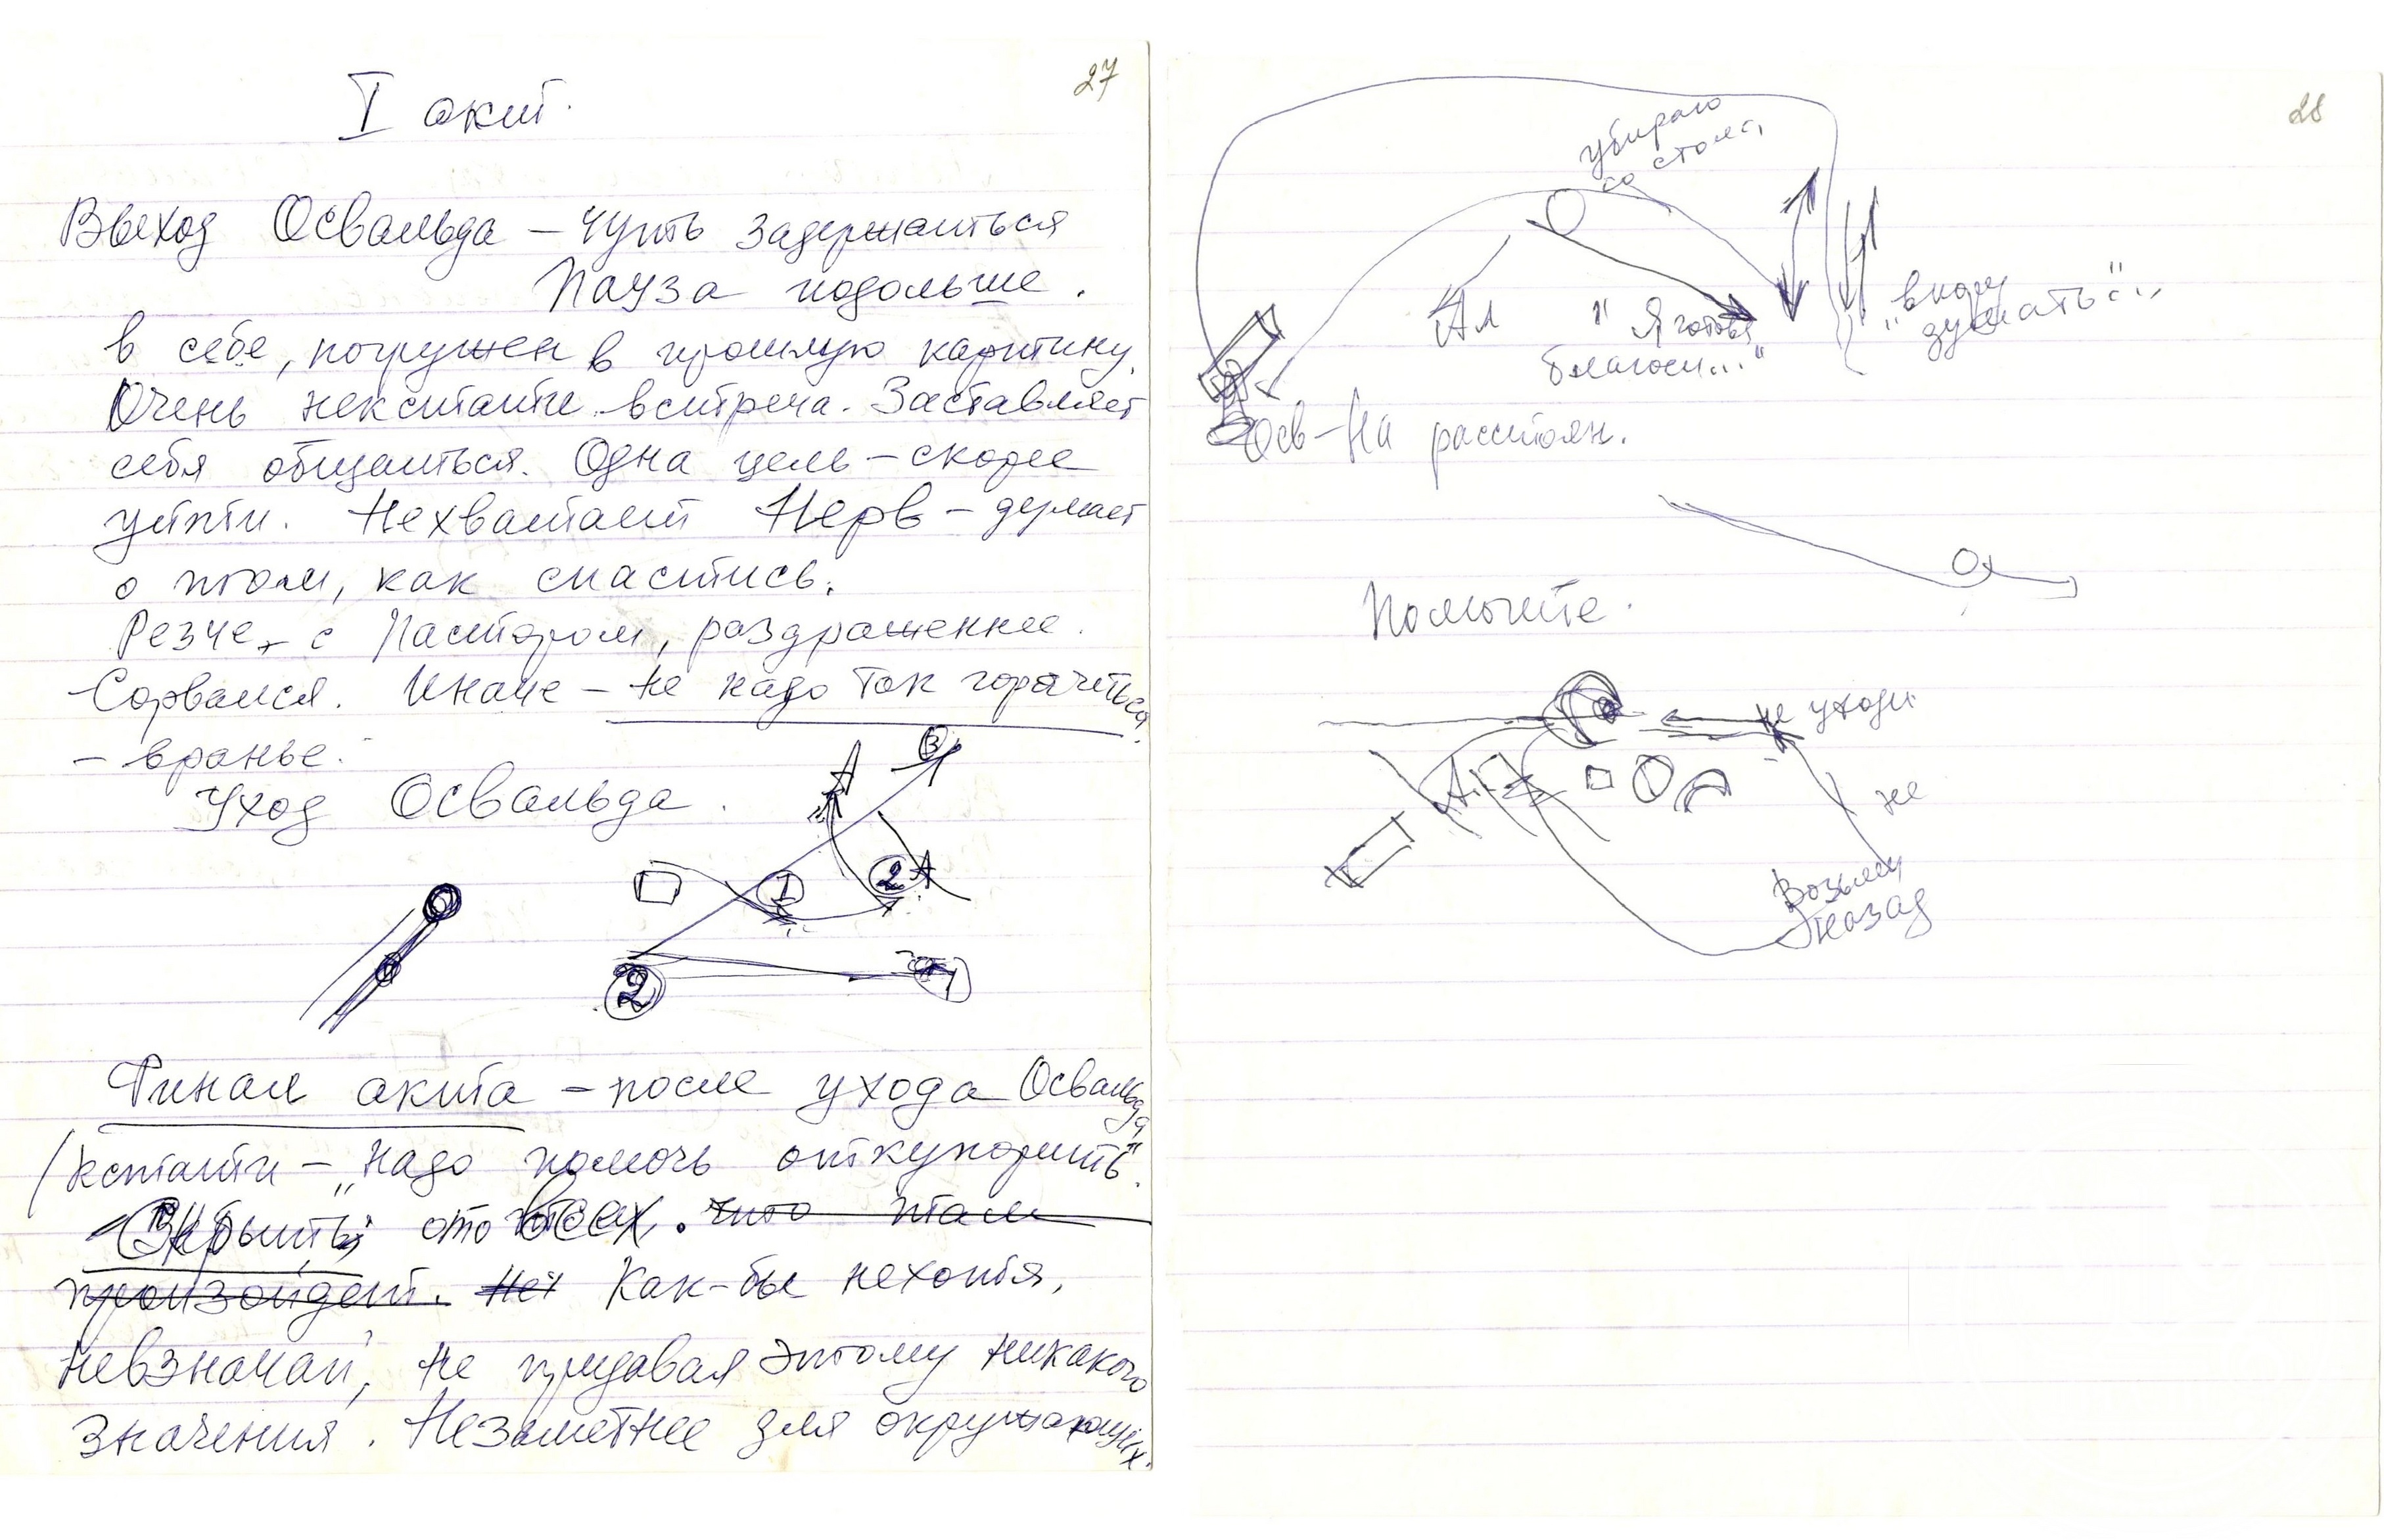 27
I акт.
Выход Освальда – чуть задержаться
Пауза подольше.
в себе, погружен в прошлую картину.
Очень некстати встреча. Заставляет
себя общаться. Одна цель – скорее
уйти. Нехватает Нерв – думает
о том, как спастись.
Резче – с Пастором, раздраженнее.
– Сорвался. Иначе – не надо так горячиться
– вранье.
Уход Освальда.
В
А
1
2
А
2
1
Финал акта – после ухода Освальда
Кстати – „надо помочь откупорить".
Скрыть ото всех. что там
произойдет. Нет Как-бы нехотя,
невзначай, не придавая этому никакого
значения. Незаметнее для окружающих.
28
убираю
со стола
Ал
" Я готова
благосл..."
"вкому
Осв – На расстоян.
Помогите.
не уходи
А
не
Возьми
назад